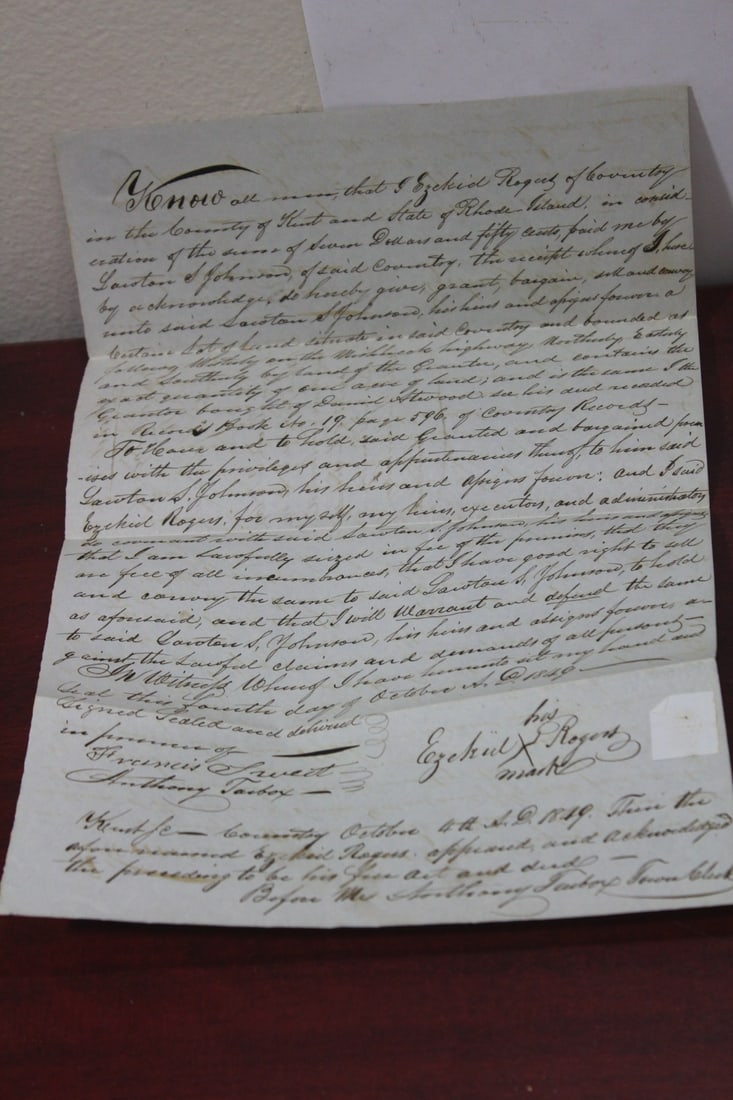 Know all men, that I Ezekiel Rogers of Coventry
in the County of Kent and State of Rhode Island, in consid-
eration of the sum of Seven Dollars and fifty cents, paid me by
Lawton S Johnson, of said Coventry, the receipt whereof I here
by acknowledge, do hereby give, grant, bargain, sell and convey
unto said Lawton S Johnson, his heirs and assigns forever a
Certain Lot of Land situate in said Coventry and bounded as
follows, Westerly on the highway, Northerly Easterly
and Southerly by land of the Grantor, and contains the
exact quantity of one acre of land; and is the same I the
Grantor bought of Daniel Atwood see his deed recorded
in Record Book No. 19, page 596, of Coventry Records—
To Have and to hold, said Granted and bargained prem
-ises with the privileges and appurtenances thereof, to him said
Lawton S. Johnson, his heirs and assigns forever; and I said
Ezekiel Rogers, for myself, my heirs, executors, and administrators
do covenant with said Lawton S. Johnson, his heirs and assigns
that I am Lawfully seized in fee of the premises, that they
are free of all incumbrances, that I have good right to sell
and convey the same to said Lawton S, Johnson, to hold
as aforesaid; and that I will Warrant and defend the same
to said Lawton S, Johnson, his heirs and assigns forever, a-
gainst the Lawful claims and demands of all persons—
In Witness Whereof I have hereunto set my hand and
seal this fourth day of October A.D. 1849
Signed Sealed and delivered
in presence of
Francis Sweet
Anthony Tarbox
his
Ezekiel X Rogers
mark
Kent Sc— Coventry October 4th A.D. 1849. Then the
afore named Ezekiel Rogers appeared, and acknowledged
the preceding to be his free act and deed—
Before Me Anthony Tarbox Town Clerk